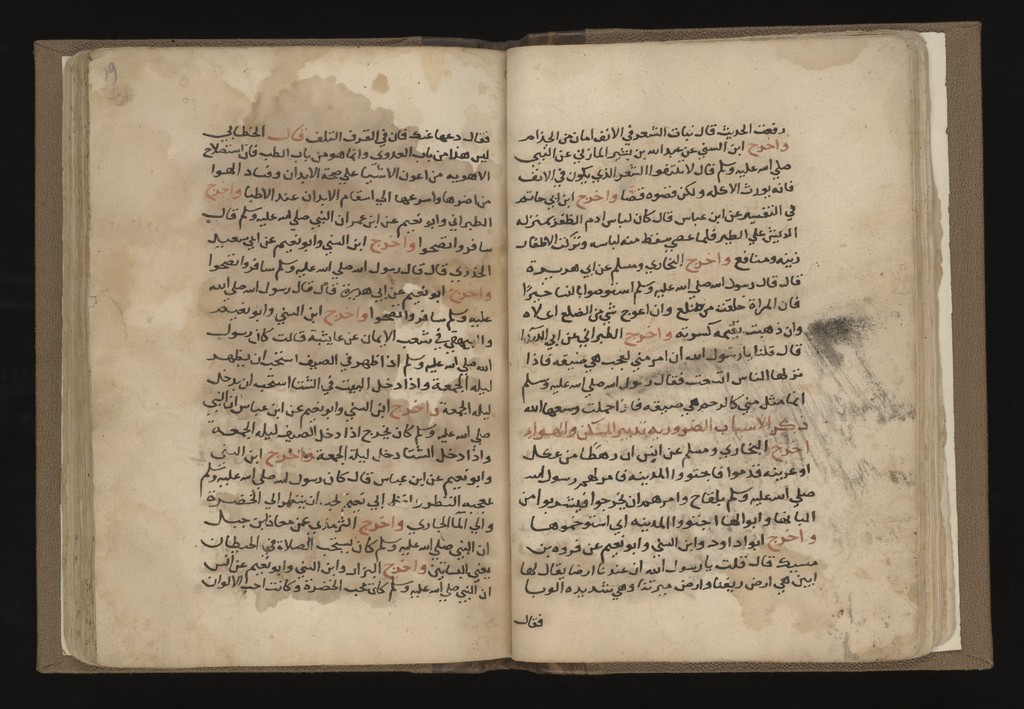 رفعت الحديث قال نبات الشعر في الانف امان من الجذام
واخرج ابن السني عن عبد الله بن بشير المازني عن النبي
صلى الله عليه وسلم قال لا تنتفوا الشعر الذي يكون في الانف
فانه يورث الاكله ولكن قصوه قصا واخرج ابن ابي حاتم
في التفسير عن ابن عباس قال كان لباس ادم الظفر بمنزلة
الريش علي الطير فلما عصي سقط منه لباسه وتركت الاظفار
زينه ومنافع واخرج البخاري ومسلم عن ابي هريرة
قال قال رسول الله صلى الله عليه وسلم استوصوا بالنسا خيرا
فان المراة خلقت من ضلع وان اعوج شي من الضلع اعلاه
وان ذهبت تقيمه كسرته واخرج الطبراني عن ابي الدردا
قال قلنا يا رسول الله ان امر مني لعجب هي ضيقه فاذا
نزلها الناس اتسعت فقال رسول الله صلى الله عليه وسلم
انما مثل مني كالرحم هي ضيقه فاذا حملت وسعها الله
ذكر الاسباب الضرورية تدبير المسكن والهواء
اخرج البخاري ومسلم عن انس ان رهطا من عكل
او عرينه قدموا فاجتووا المدينه فامر لهم رسول الله
صلى الله عليه وسلم بلقاح وامرهم ان يخرجوا فيشربوا من
البانها وابوالها اجتووا المدينه اي استوخموها
واخرج ابو داود وابن السني وابو نعيم عن فروه بن
مسيك قال قلت يا رسول الله ان عندنا ارضا يقال لها
ابين هي ارض ريفنا وارض ميرتنا وهي شديده الوبا
فقال
19
فقال دعها عنك فان في القرف التلف قال الخطابي
ليس هذا من باب العدوي وانما هو من باب الطب فان استصلاح
الاهويه من اعون الاشيا علي صحة الابدان وفساد الهوا
من اضرها واسرعها الي اسقام الابدان عند الاطبا واخرج
الطبراني وابو نعيم عن ابن عمر ان النبي صلى الله عليه وسلم قال
سافروا تصحوا واخرج ابن السني وابو نعيم عن ابي سعيد
الخدري قال قال رسول الله صلى الله عليه وسلم سافروا تصحوا
واخرج ابو نعيم عن ابي هريرة قال قال رسول الله صلى الله
عليه وسلم سافروا تصحوا واخرج ابن السني وابو نعيم
والبيهقي في شعب الايمان عن عايشة قالت كان رسول
الله صلى الله عليه وسلم اذا ظهر في الصيف استحب ان يظهر
ليله الجمعة واذا دخل البيت في الشتا استحب ان يدخل
ليله الجمعة واخرج ابن السني وابو نعيم عن ابن عباس ان النبي
صلى الله عليه وسلم كان يخرج اذا دخل الصيف ليلة الجمعه
واذا دخل الشتا دخل ليلة الجمعة واخرج ابن السني
وابو نعيم عن ابن عباس قال كان رسول الله صلى الله عليه وسلم
يعجبه النظر ان ينظر الي الخضرة
والي الما الجاري واخرج الترمذي عن معاذ بن جبل
ان النبي صلى الله عليه وسلم كان يستحب الصلاة في الحيطان
يعني البساتين واخرج البزار وابن السني وابو نعيم عن انس
ان النبي صلى الله عليه وسلم كان يحب الخضرة وكانت احب الالوان